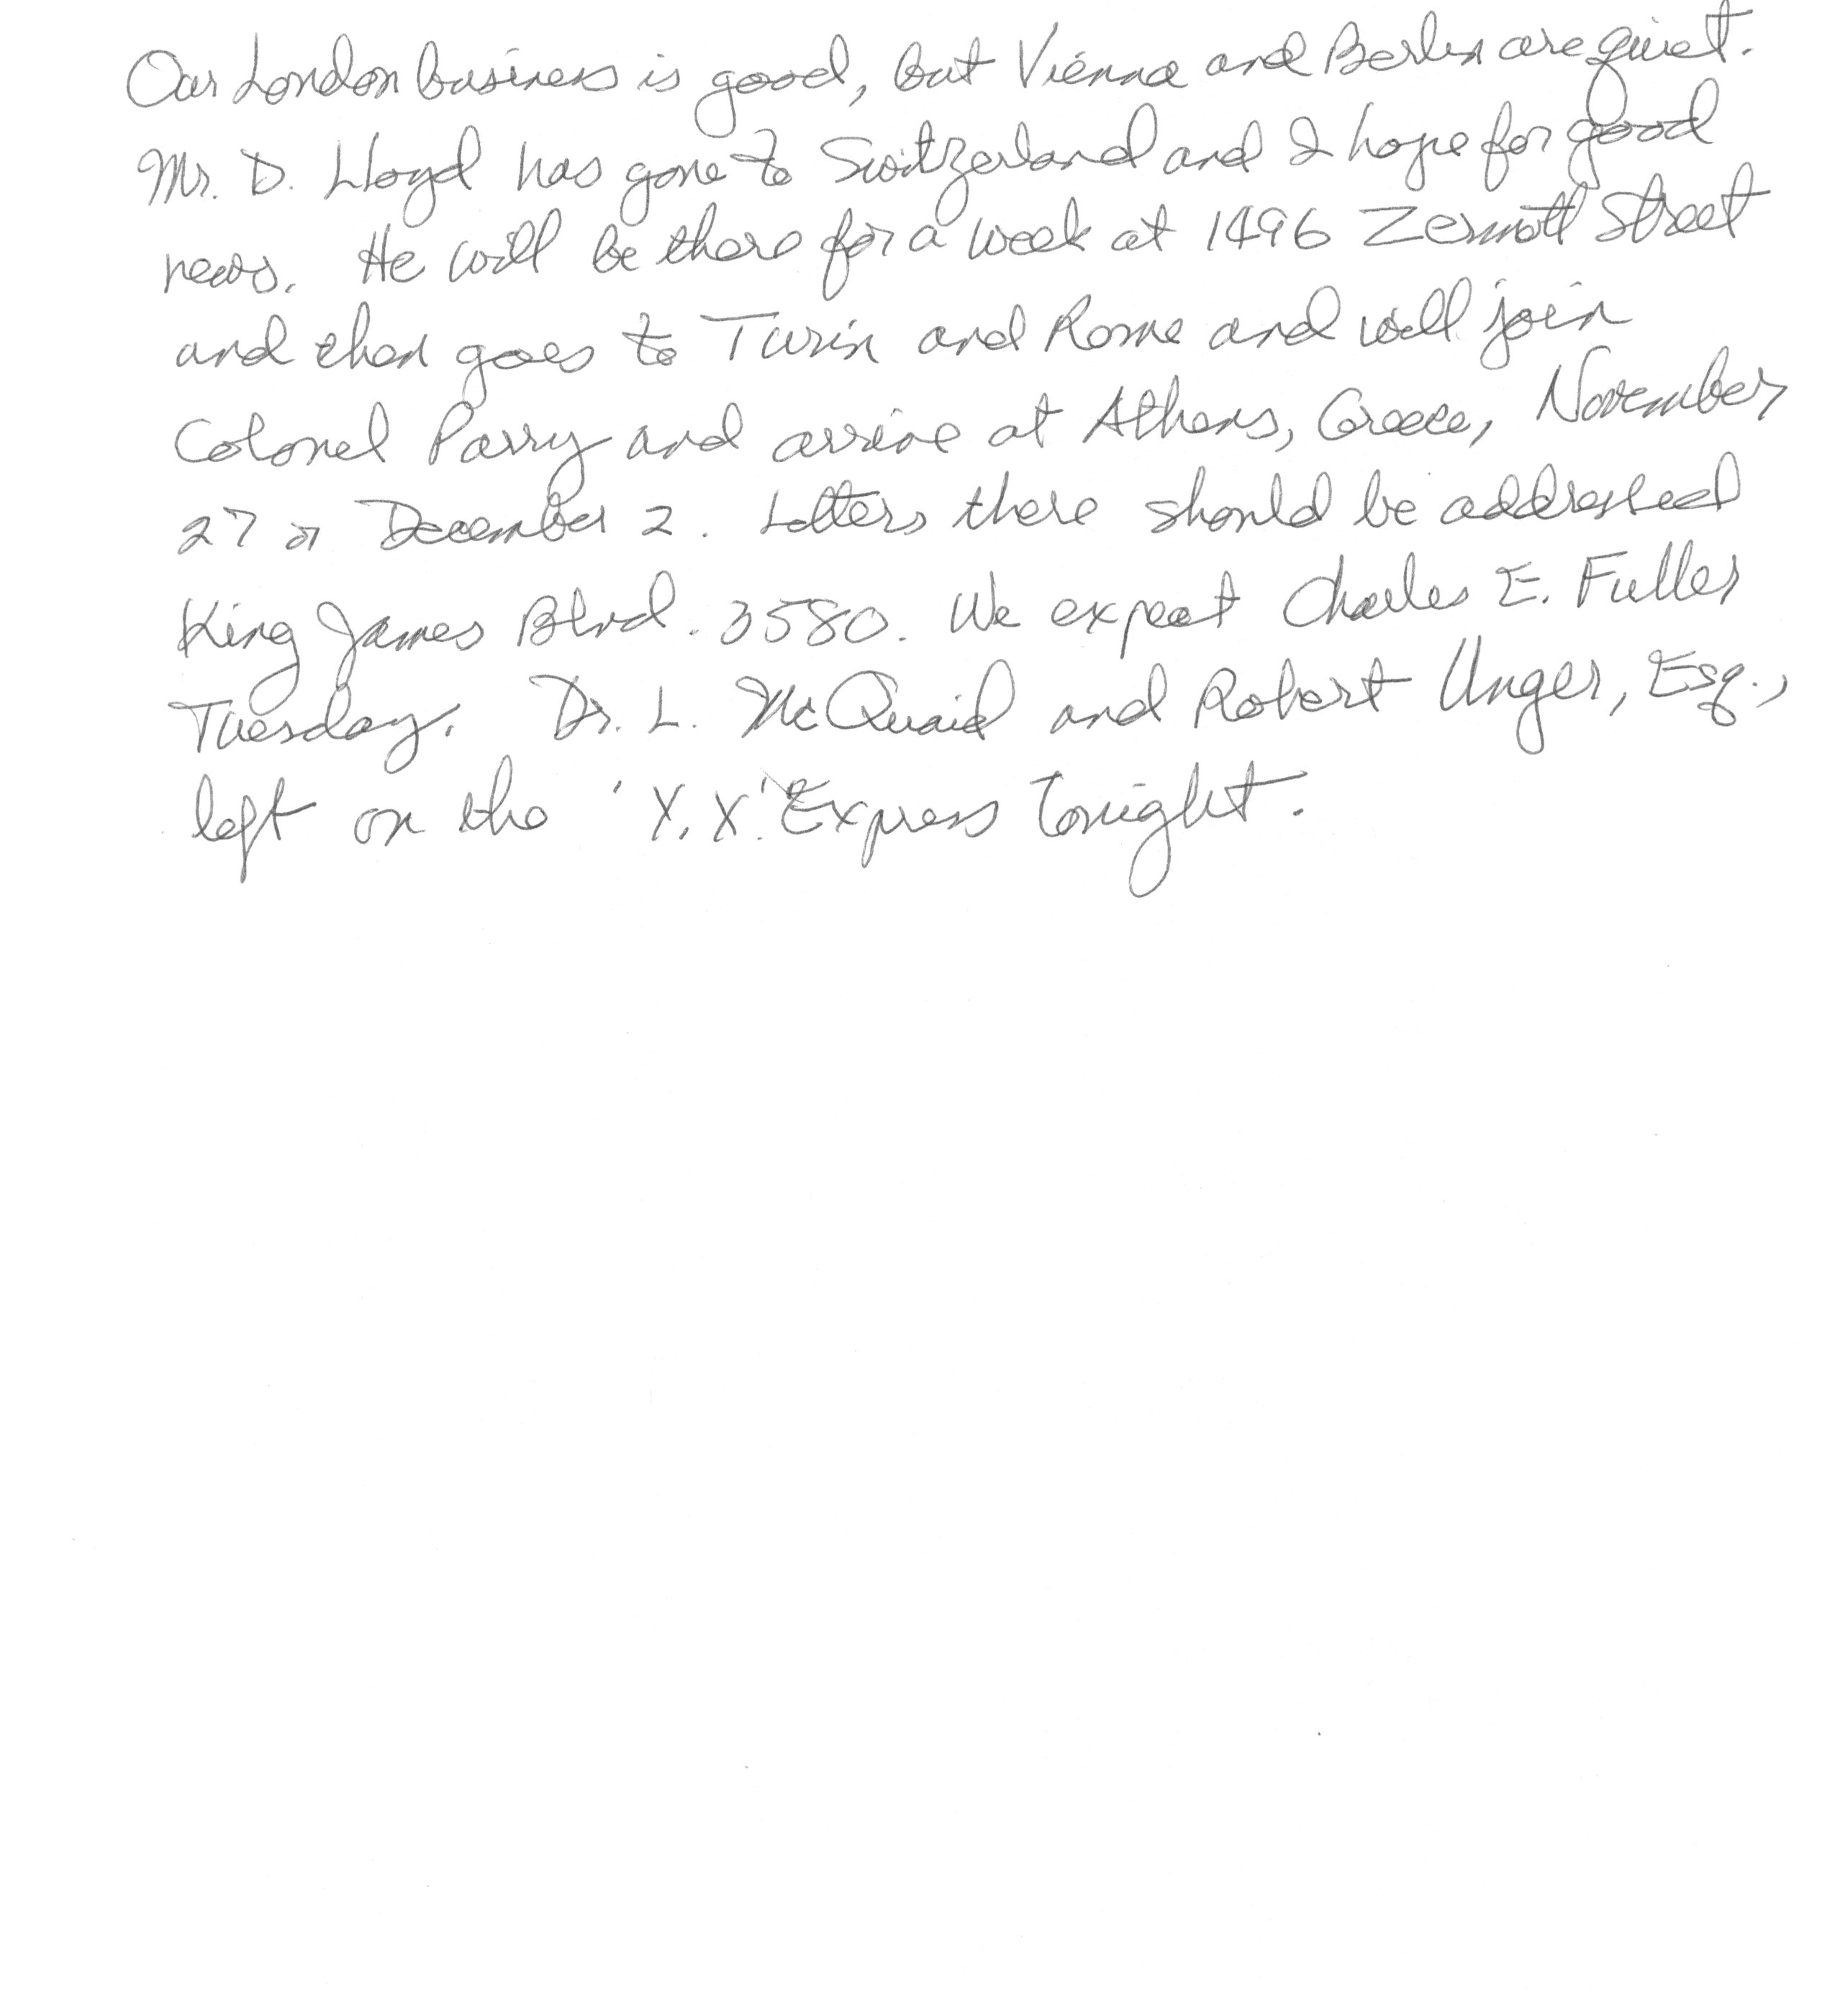 Our London business is good, but Vienna and Berlin are quiet.
Mr. D. Lloyd has gone to Switzerland and I hope for good
news. He will be there for a week at 1496 Zermott Street
and then goes to Turin and Rome and will join
Colonel Parry and arrive at Athens, Greece, November
27 or December 2. Letters there should be addressed
King James Blvd. 3580. We expect Charles E. Fuller
Tuesday. Dr. L. McQuaid and Robert Unger, Esq.,
left on the 'X.X.' Express tonight.